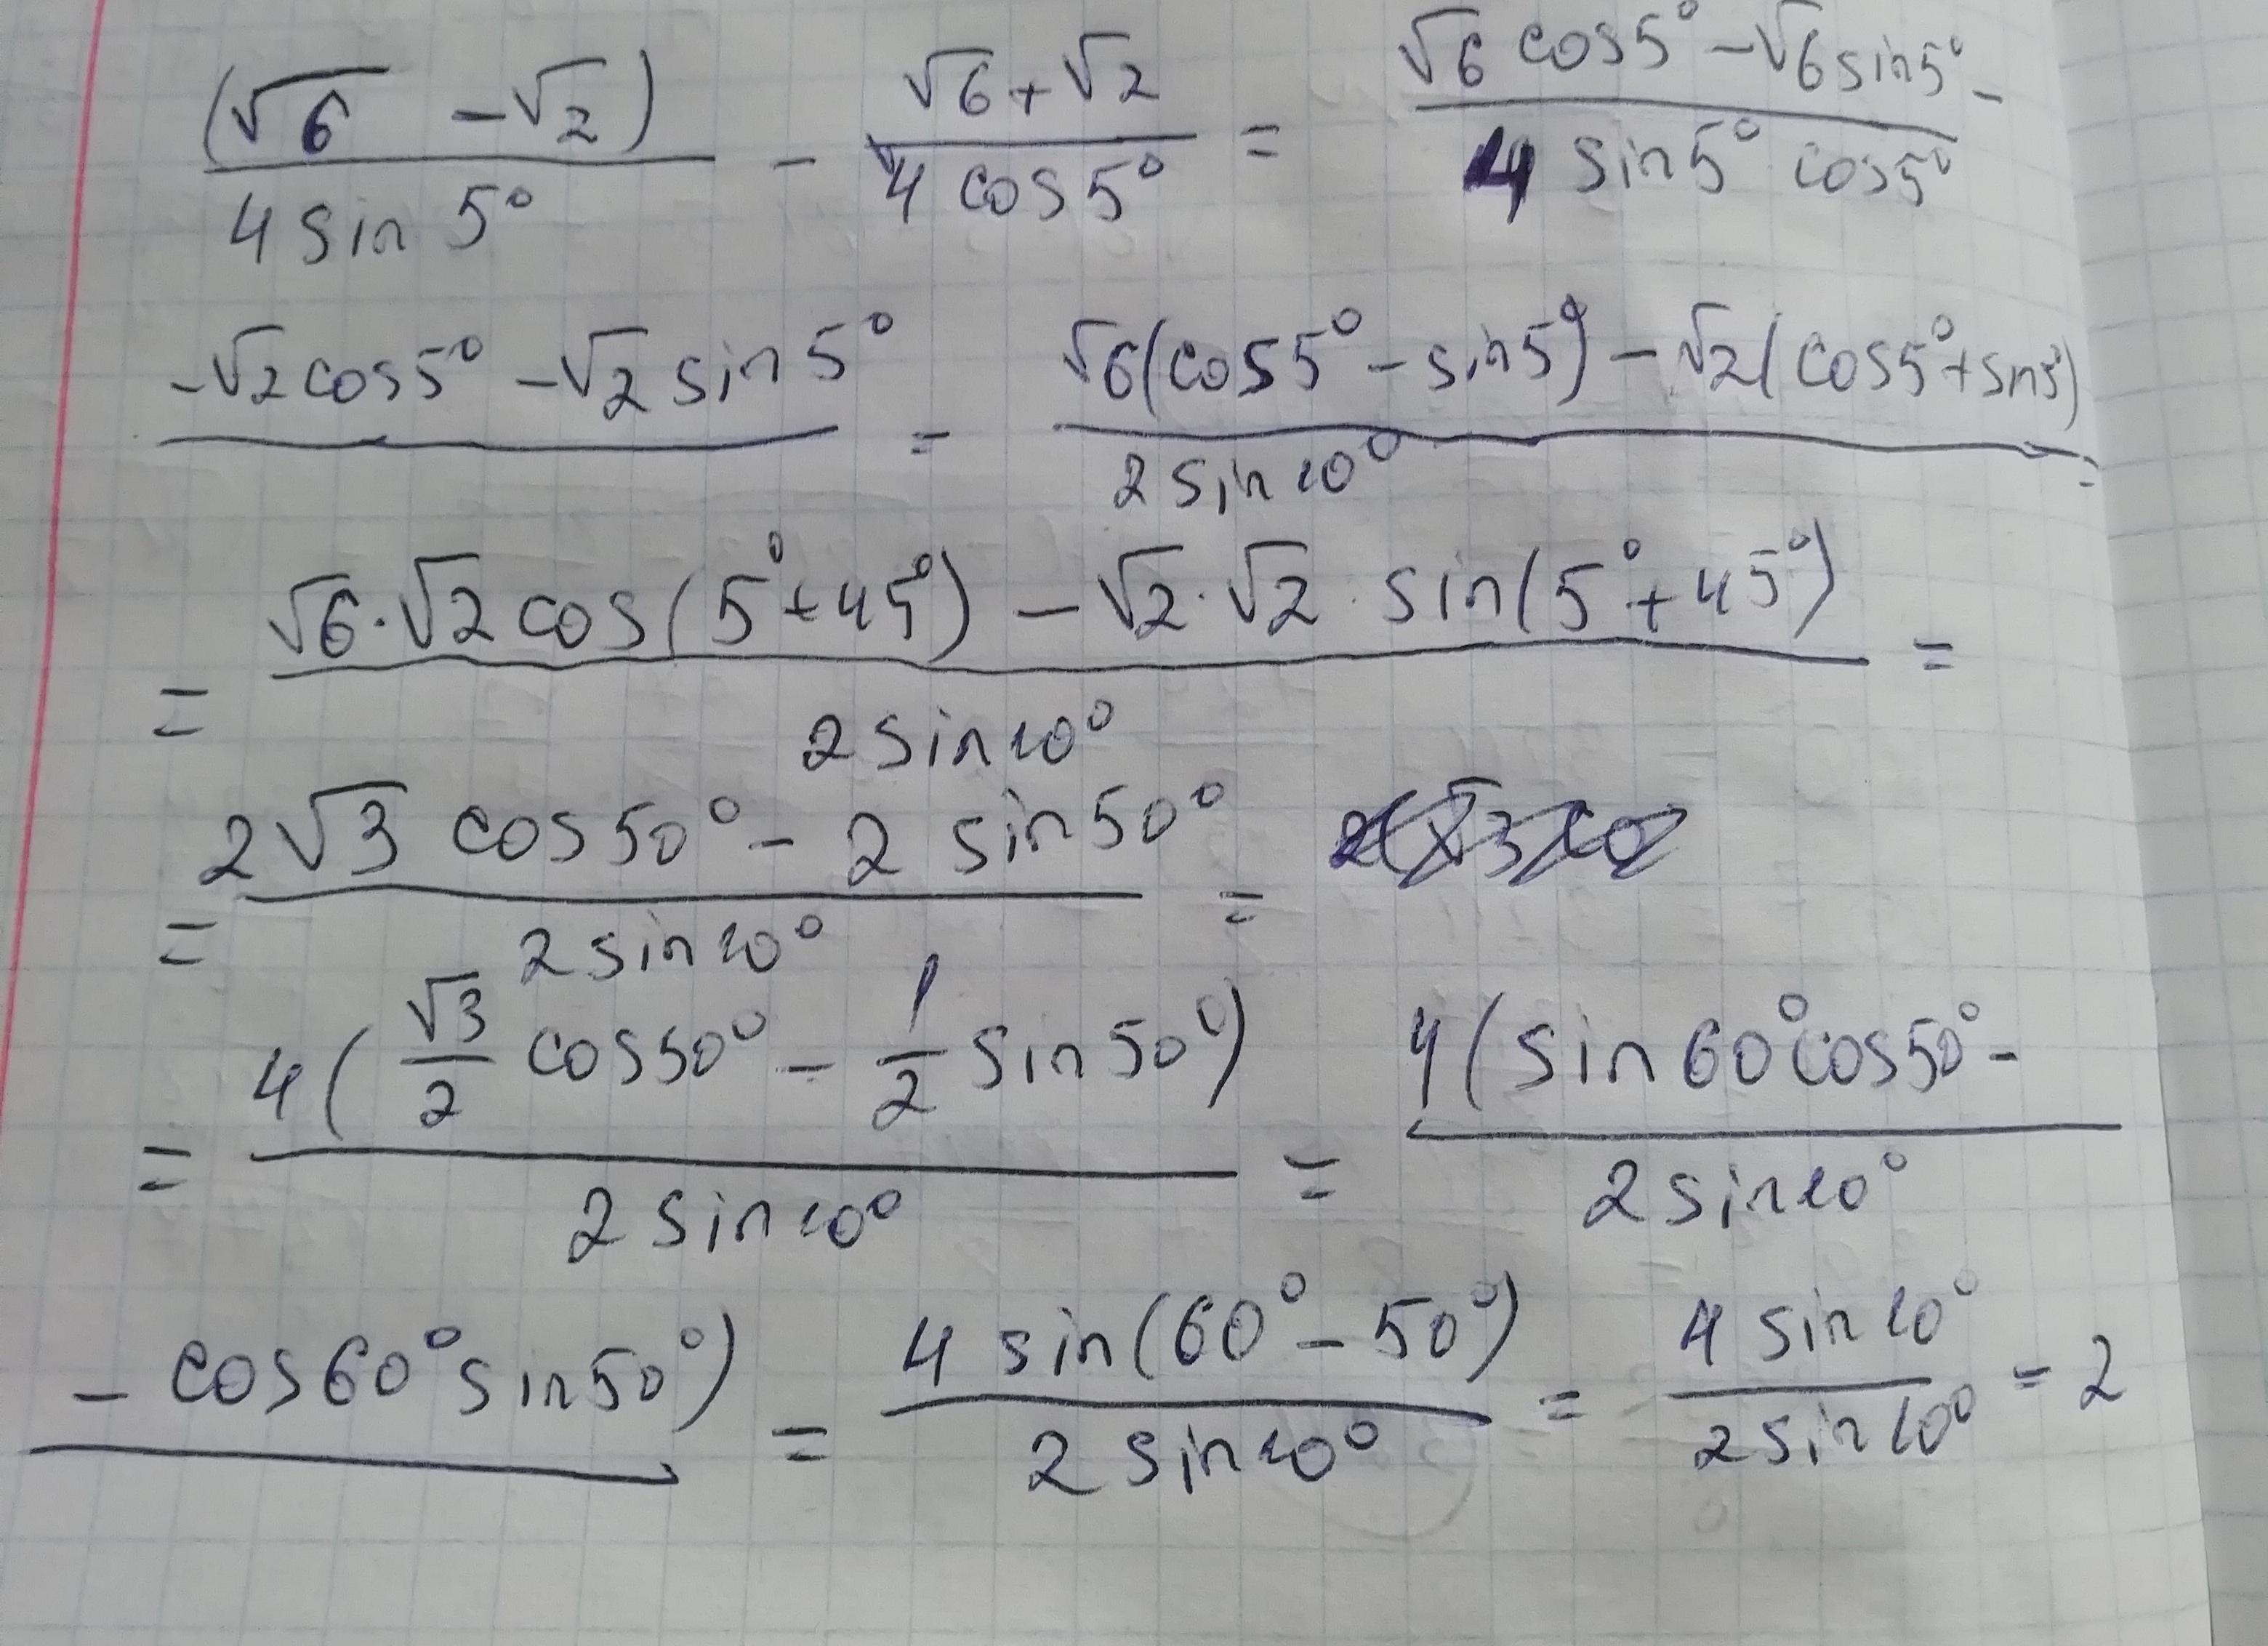 (√6 - √2) / 4 sin 5° - (√6 + √2) / 4 cos 5° = (√6 cos 5° - √6 sin 5° - / 4 sin 5° cos 5°
- √2 cos 5° - √2 sin 5°) = (√6 (cos 5° - sin 5°) - √2 (cos 5° + sin 5°)) / 2 sin 10° =
= (√6 · √2 cos (5° + 45°) - √2 · √2 · sin (5° + 45°)) / 2 sin 10° =
= (2√3 cos 50° - 2 sin 50°) / 2 sin 10° =
= 4 (√3/2 cos 50° - 1/2 sin 50°) / 2 sin 10° = 4 (sin 60° cos 50° - / 2 sin 10°
- cos 60° sin 50°) = 4 sin (60° - 50°) / 2 sin 10° = 4 sin 10° / 2 sin 10° = 2